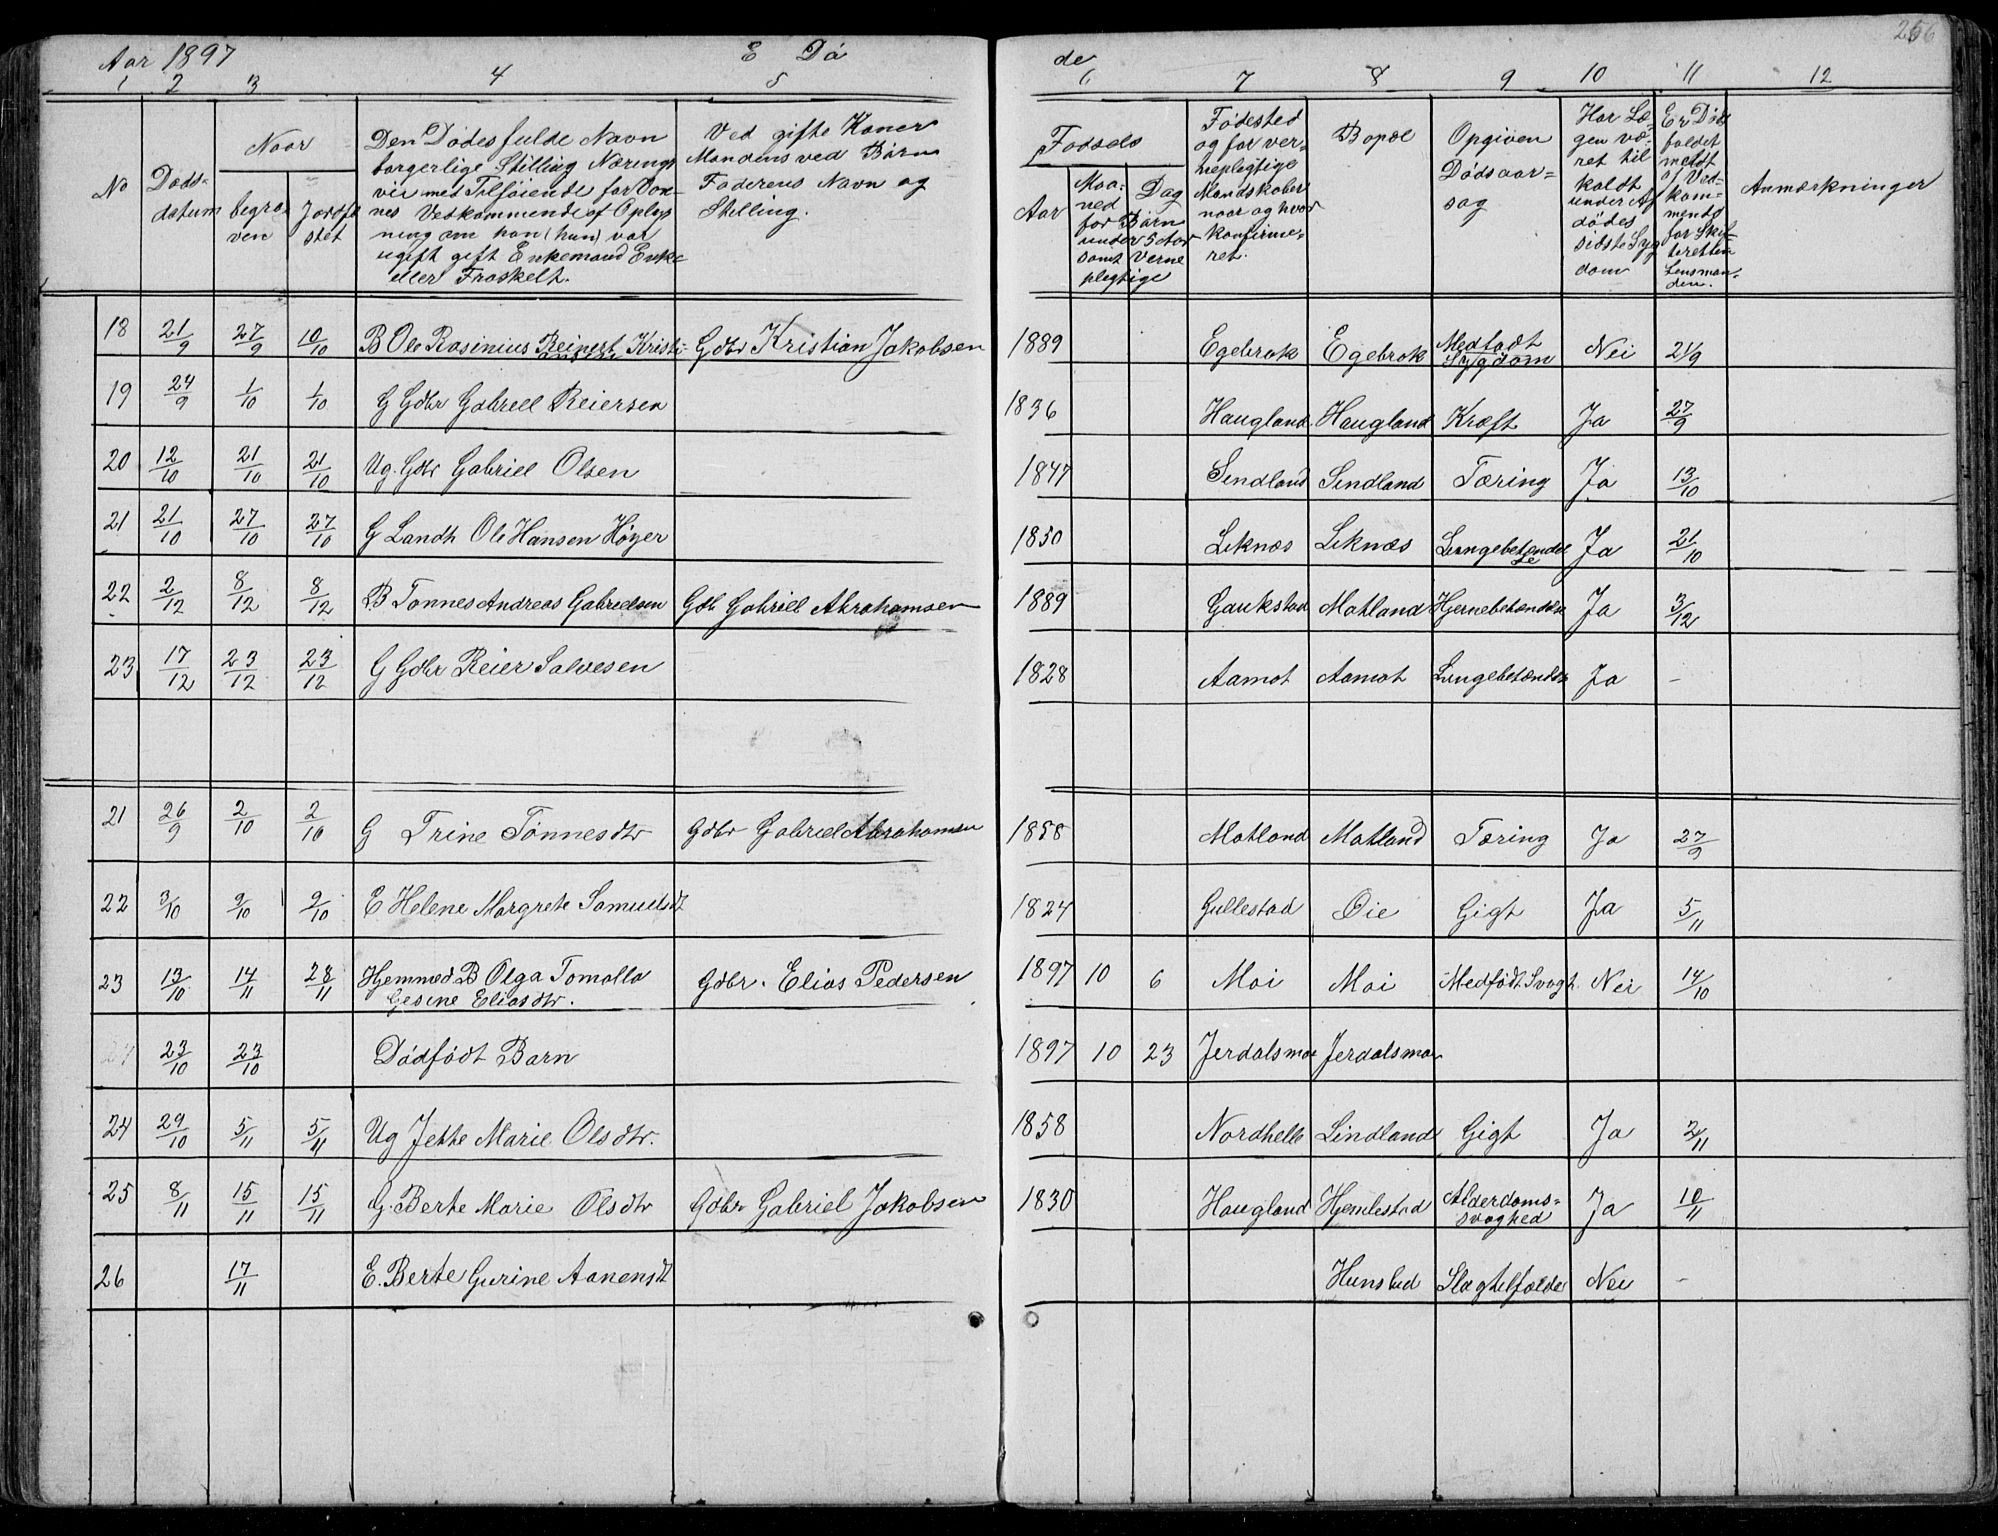 256
Aar 1897 E Dö de
1 2 3 4 5 6 7 8 9 10 11 12
No
Döds-
datum
Naar
begra-
ven
Jordfæ
stet
Den Dödes fulde Navn
borgerlige Stilling Nærings
vei med Tilföiende for Vox-
nes Vedkommende af Oplys
ning om han (hun) var
ugift gift Enkemand Enke
eller Fraskelt.
Ved gifte Koner
Mandens ved Börn
Faderens Navn og
Stilling.
Födsels
Aar
Maa-
ned
Dag
for Börn
under 5 Aar
samt Verne
plegtige
Födested
og for ver-
neplegtige
Mandskaber
naar og hvor
konfirme-
ret.
Bopæl
Opgiven
Dödsaar-
sag
Har Læ-
gen væ-
ret til
kaldt
under Af
dödes
sidste Syg
dom
Er Döds
faldet
meldt
af Ved-
kom-
mende
for Skif-
teretten
Lensman-
den.
Anmærkninger
18 21/9 27/9 10/10 B Ole Rasinius Reinert Kristi- Gdbr Kristian Jakobsen 1889 Egebrok Egebrok Medfödt Sygdom Nei 21/9
19 24/9 1/10 1/10 G Gdbr Gabriel Reiersen 1836 Haugland Haugland Kræft Ja 27/9
20 12/10 21/10 21/10 Ug. Gdbr Gabriel Olsen 1847 Sindland Sindland Tæring Ja 13/10
21 21/10 27/10 27/10 G Landh Ole Hansen Höyer 1850 Liknæs Liknæs Lungebetændelse Ja 21/10
22 2/12 8/12 8/12 B Tönnes Andreas Gabrielsen Gdb Gabriel Abrahamsen 1889 Gaukstad Matland Hjernebetændelse Ja 3/12
23 17/12 23/12 23/12 G Gdbr Reier Salvesen 1828 Aamot Aamot Lungebetændelse Ja -
21 26/9 2/10 2/10 G Trine Tönnesdtr Gdbr Gabriel Abrahamsen 1858 Matland Matland Tæring Ja 27/9
22 3/10 9/10 9/10 E Helene Margrete Samuelsdt 1824 Gullestad Öie Gigt Ja 5/11
23 13/10 14/11 28/11 Hjemmed. B Olga Tomalla Gdbr. Elias Pedersen 1897 10 6 Moi Moi Medfödt Svagh. Nei 14/10
Gesine Eliasdtr.
24 23/10 23/10 Dödfödt Barn 1897 10 23 Jerdalsmo Jerdalsmo
24 29/10 5/11 5/11 Ug Jette Marie Olsdtr. 1858 Nordhelle Lindland Gigt Ja 2/11
25 8/11 15/11 15/11 G. Berte Marie Olsdtr Gdbr Gabriel Jakobsen 1830 Haugland Hjemlestad Alderdoms-svaghed Ja 10/11
26 17/11 E. Berte Gurine Aanensdt Hunstad Slagtilfælde Nei -